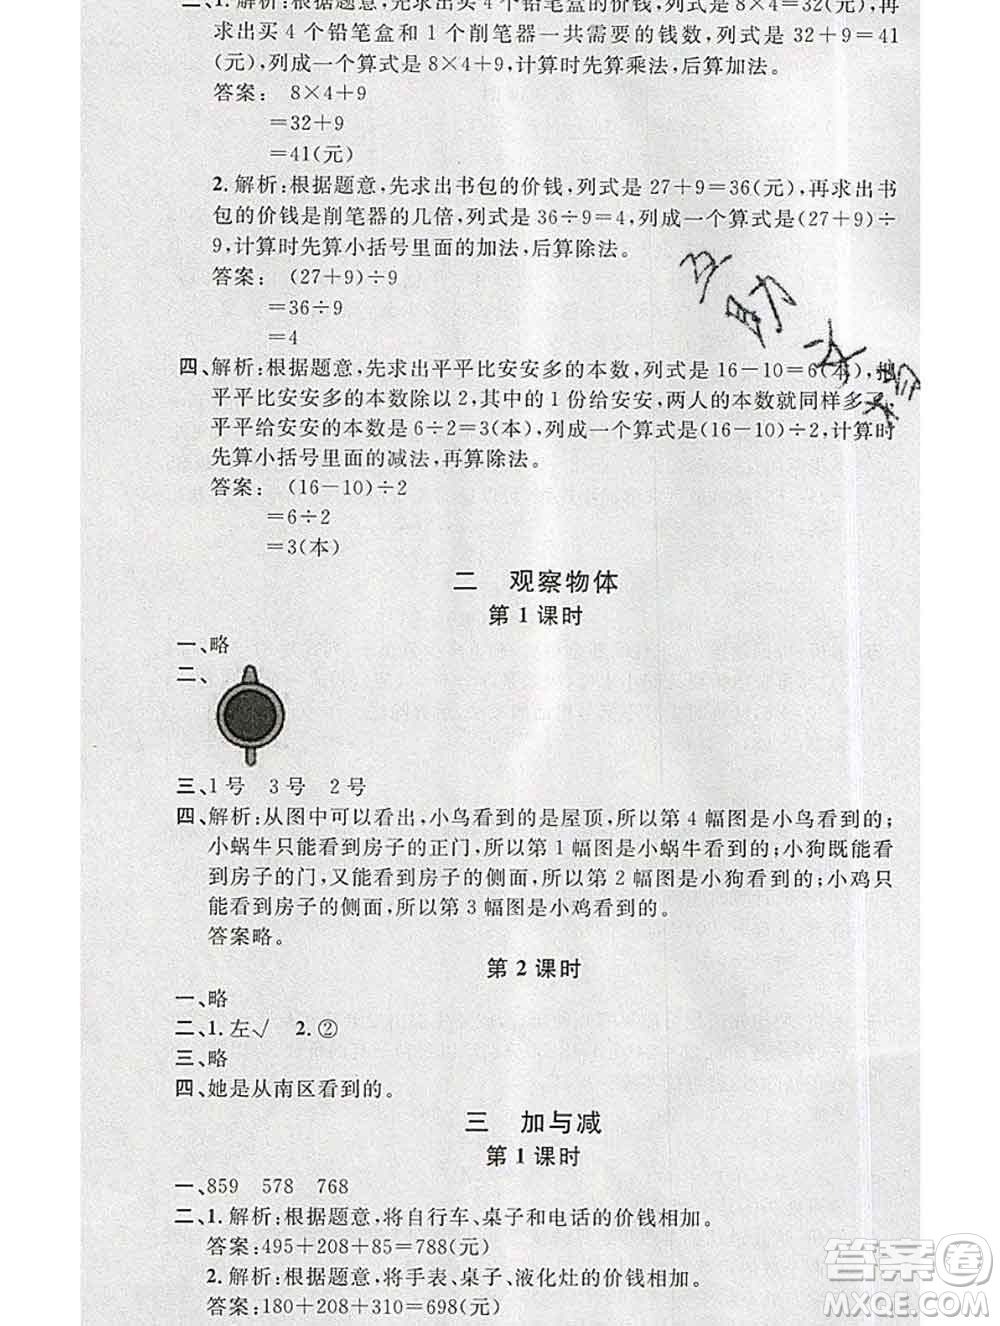 二、1. 解析:根据题意,先求出买4个铅笔盒的价钱,列式是8×4=32(元),再
求出买4个铅笔盒和1个削笔器一共需要的钱数,列式是32+9=41
(元),列成一个算式是8×4+9,计算时先算乘法,后算加法。
答案: 8×4+9
=32+9
=41(元)
2. 解析:根据题意,先求出书包的价钱,列式是27+9=36(元),再求出书
包的价钱是削笔器的几倍,列式是36÷9=4,列成一个算式是(27+9)÷
9,计算时先算小括号里面的加法,后算除法。
答案: (27+9)÷9
=36÷9
=4
四、解析:根据题意,先求出平平比安安多的本数,列式是16-10=6(本),把
平平比安安多的本数除以2,其中的1份给安安,两人的本数就同样多了,
平平给安安的本数是6÷2=3(本),列成一个算式是(16-10)÷2,计算时
先算小括号里面的减法,再算除法。
答案: (16-10)÷2
=6÷2
=3(本)
二 观察物体
第1课时
一、略
二、
三、1号 3号 2号
四、解析:从图中可以看出,小鸟看到的是屋顶,所以第4幅图是小鸟看到的;
小蜗牛只能看到房子的正门,所以第1幅图是小蜗牛看到的;小狗既能看
到房子的门,又能看到房子的侧面,所以第2幅图是小狗看到的;小鸡只
能看到房子的侧面,所以第3幅图是小鸡看到的。
答案略。
第2课时
一、略
二、1. 左√ 2. ②
三、略
四、她是从南区看到的。
三 加与减
第1课时
一、859 578 768
二、1. 解析:根据题意,将自行车、桌子和电话的价钱相加。
答案:495+208+85=788(元)
2. 解析:根据题意,将手表、桌子、液化灶的价钱相加。
答案:180+208+310=698(元)
答案圈
MXQE.COM